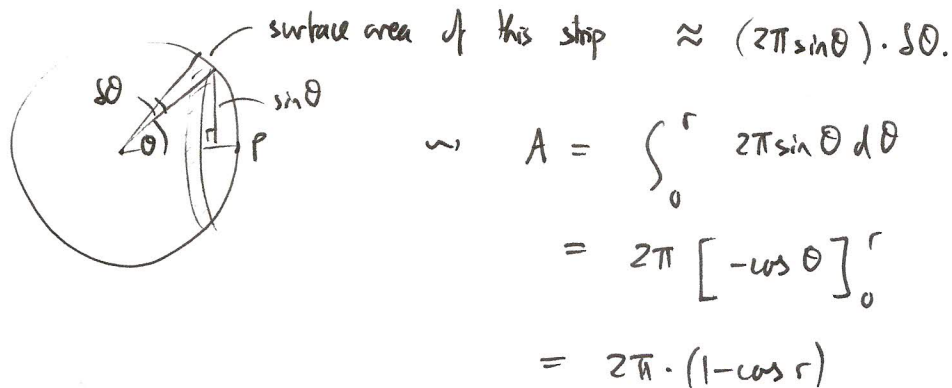 surface area of this strip ≈ (2π sinθ) · δθ.
δθ
sinθ
θ
P
⇝ A = ∫₀ʳ 2π sinθ dθ
= 2π [-cos θ]₀ʳ
= 2π · (1-cos r)